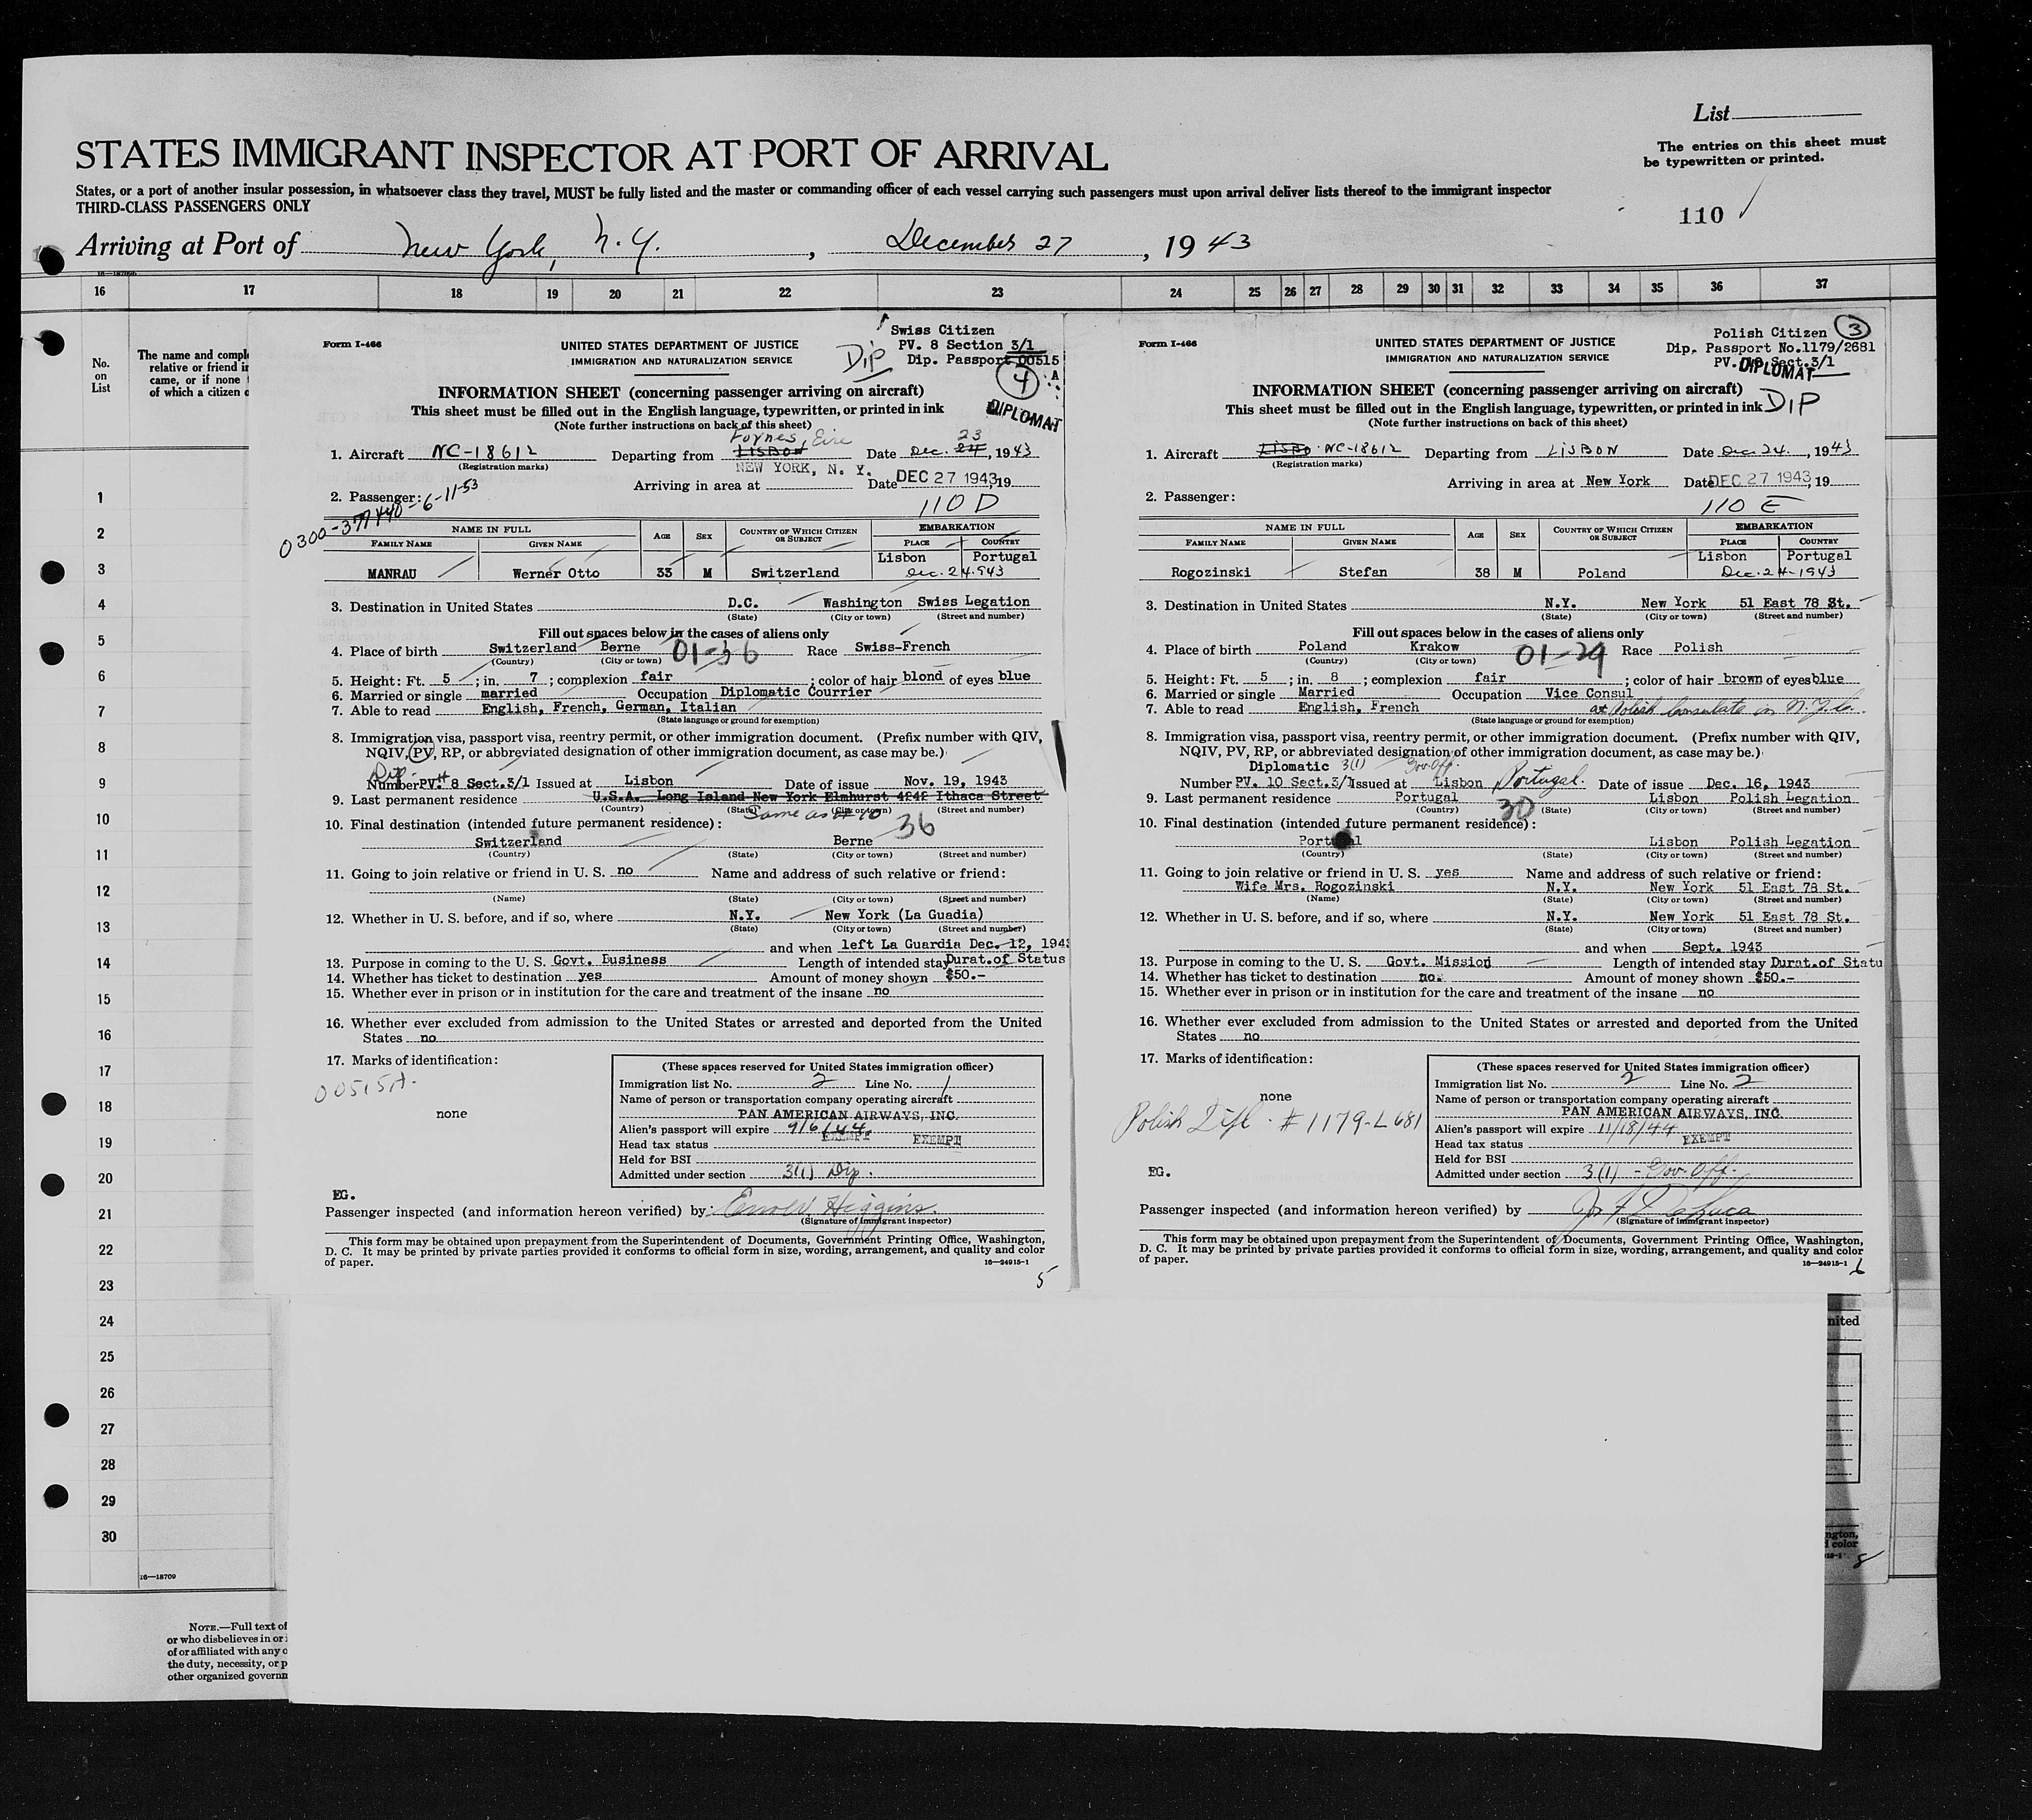 List
The entries on this sheet must
be typewritten or printed.
STATES IMMIGRANT INSPECTOR AT PORT OF ARRIVAL
States, or a port of another insular possession, in whatsoever class they travel, MUST be fully listed and the master or commanding officer of each vessel carrying such passengers must upon arrival deliver lists thereof to the immigrant inspector
THIRD-CLASS PASSENGERS ONLY
110 ✓
Arriving at Port of New York, N.Y., December 27, 1943
16 17 18 19 20 21 22 23 24 25 26 27 28 29 30 31 32 33 34 35 36 37
No.
on
List
The name and compl
relative or friend in
came, or if none
of which a citizen o
1
2
3
4
5
6
7
8
9
10
11
12
13
14
15
16
17
18
19
20
21
22
23
24
25
26
27
28
29
30
16—18709
NOTE.—Full text of
or who disbelieves in or
of or affiliated with any o
the duty, necessity, or p
other organized governm
Form I-466
UNITED STATES DEPARTMENT OF JUSTICE
IMMIGRATION AND NATURALIZATION SERVICE
Swiss Citizen
PV. 8 Section 3/1
Dip. Passport 00515
A
Dip
4
DIPLOMAT
INFORMATION SHEET (concerning passenger arriving on aircraft)
This sheet must be filled out in the English language, typewritten, or printed in ink
(Note further instructions on back of this sheet)
Foynes, Eire 23
1. Aircraft NC-18612 Departing from Lisbon Date Dec. 24, 1943
(Registration marks)
NEW YORK, N. Y.
Arriving in area at Date DEC 27 1943, 19
2. Passenger:
0300-377440-6-11-53
110 D
NAME IN FULL AGE SEX COUNTRY OF WHICH CITIZEN OR SUBJECT EMBARKATION
FAMILY NAME GIVEN NAME PLACE COUNTRY
Lisbon Portugal
MANRAU Werner Otto 33 M Switzerland Dec. 24.943
3. Destination in United States D.C. Washington Swiss Legation
(State) (City or town) (Street and number)
Fill out spaces below in the cases of aliens only
4. Place of birth Switzerland Berne 01-36 Race Swiss-French
(Country) (City or town)
5. Height: Ft. 5; in. 7; complexion fair; color of hair blond of eyes blue
6. Married or single married Occupation Diplomatic Courrier
7. Able to read English, French, German, Italian
(State language or ground for exemption)
8. Immigration visa, passport visa, reentry permit, or other immigration document. (Prefix number with QIV,
NQIV, PV, RP, or abbreviated designation of other immigration document, as case may be.)
Number PV.# 8 Sect.3/1 Issued at Lisbon Date of issue Nov. 19, 1943
9. Last permanent residence U.S.A. Long Island New York Elmhurst 4242 Ithaca Street
(Country) (State) (City or town) (Street and number)
Same as # 10
36
10. Final destination (intended future permanent residence):
Switzerland Berne
(Country) (State) (City or town) (Street and number)
11. Going to join relative or friend in U. S. no Name and address of such relative or friend:
(Name) (State) (City or town) (Street and number)
12. Whether in U. S. before, and if so, where N.Y. New York (La Guadia)
(State) (City or town) (Street and number)
and when left La Guardia Dec. 12, 1943
13. Purpose in coming to the U. S. Govt. Business Length of intended stay Durat.of Status
14. Whether has ticket to destination yes Amount of money shown $50.-
15. Whether ever in prison or in institution for the care and treatment of the insane no
16. Whether ever excluded from admission to the United States or arrested and deported from the United
States no
17. Marks of identification:
00515A.
none
(These spaces reserved for United States immigration officer)
Immigration list No. 2 Line No. 1
Name of person or transportation company operating aircraft
PAN AMERICAN AIRWAYS, INC.
Alien's passport will expire 9/6/44
EXEMPT EXEMPT
Head tax status
Held for BSI
Admitted under section 3(1) Dip.
EG.
Passenger inspected (and information hereon verified) by: Higgins
(Signature of immigrant inspector)
This form may be obtained upon prepayment from the Superintendent of Documents, Government Printing Office, Washington,
D. C. It may be printed by private parties provided it conforms to official form in size, wording, arrangement, and quality and color
of paper.
16—24915-1
5
Form I-466
UNITED STATES DEPARTMENT OF JUSTICE
IMMIGRATION AND NATURALIZATION SERVICE
Polish Citizen 3
Dip. Passport No.1179/2681
PV. Sect.3/1
DIPLOMAT
INFORMATION SHEET (concerning passenger arriving on aircraft)
This sheet must be filled out in the English language, typewritten, or printed in ink
DIP
(Note further instructions on back of this sheet)
1. Aircraft NC-18612 Departing from LISBON Date Dec 24., 1943
(Registration marks)
Arriving in area at New York Date DEC 27 1943, 19
2. Passenger:
110 E
NAME IN FULL AGE SEX COUNTRY OF WHICH CITIZEN OR SUBJECT EMBARKATION
FAMILY NAME GIVEN NAME PLACE COUNTRY
Lisbon Portugal
Rogozinski Stefan 38 M Poland Dec. 24-1943
3. Destination in United States N.Y. New York 51 East 78 St.
(State) (City or town) (Street and number)
Fill out spaces below in the cases of aliens only
4. Place of birth Poland Krakow 01-29 Race Polish
(Country) (City or town)
5. Height: Ft. 5; in. 8; complexion fair; color of hair brown of eyes blue
6. Married or single Married Occupation Vice Consul
7. Able to read English, French at Polish Consulate in N.Y.C.
(State language or ground for exemption)
8. Immigration visa, passport visa, reentry permit, or other immigration document. (Prefix number with QIV,
NQIV, PV, RP, or abbreviated designation of other immigration document, as case may be.)
Diplomatic 3(1) Gov. Off.
Number PV. 10 Sect.3/1 Issued at Lisbon Portugal. Date of issue Dec. 16, 1943
9. Last permanent residence Portugal Lisbon Polish Legation
(Country) (State) (City or town) (Street and number)
30
10. Final destination (intended future permanent residence):
Portugal Lisbon Polish Legation
(Country) (State) (City or town) (Street and number)
11. Going to join relative or friend in U. S. yes Name and address of such relative or friend:
Wife Mrs. Rogozinski N.Y. New York 51 East 78 St.
(Name) (State) (City or town) (Street and number)
12. Whether in U. S. before, and if so, where N.Y. New York 51 East 78 St.
(State) (City or town) (Street and number)
and when Sept. 1943
13. Purpose in coming to the U. S. Govt. Mission Length of intended stay Durat.of Statu
14. Whether has ticket to destination no. Amount of money shown $50.-
15. Whether ever in prison or in institution for the care and treatment of the insane no
16. Whether ever excluded from admission to the United States or arrested and deported from the United
States no
17. Marks of identification:
none
Polish Dipl. #1179-L681
(These spaces reserved for United States immigration officer)
Immigration list No. 2 Line No. 2
Name of person or transportation company operating aircraft
PAN AMERICAN AIRWAYS, INC.
Alien's passport will expire 11/18/44
EXEMPT
Head tax status
Held for BSI
Admitted under section 3(1) - Gov. Off.
EG.
Passenger inspected (and information hereon verified) by
(Signature of immigrant inspector)
This form may be obtained upon prepayment from the Superintendent of Documents, Government Printing Office, Washington,
D. C. It may be printed by private parties provided it conforms to official form in size, wording, arrangement, and quality and color
of paper.
16—24915-1
6
nited
ngton,
d color
8